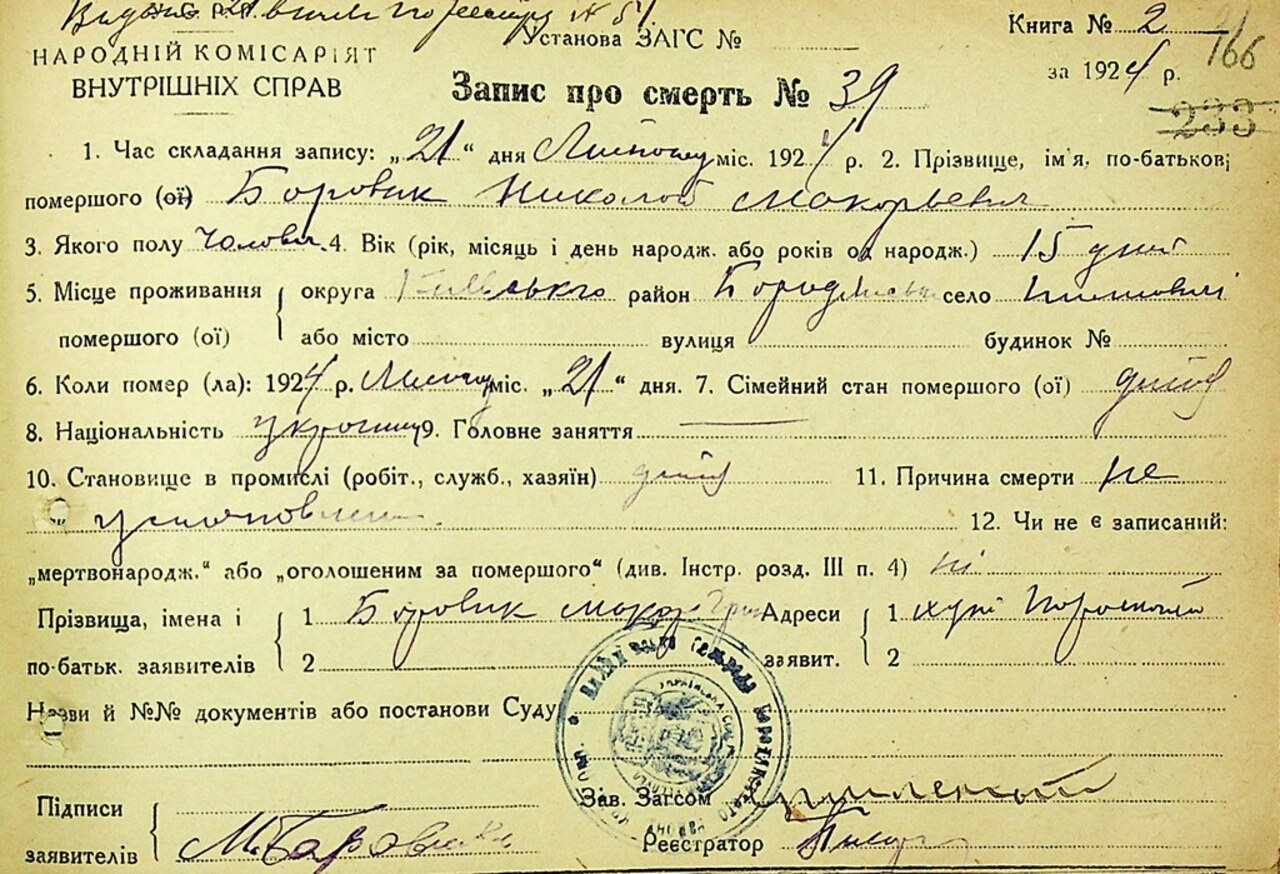 Видано
У.С.Р.Р.
НАРОДНІЙ КОМІСАРІЯТ
ВНУТРІШНІХ СПРАВ
Установа ЗАГС №
Книга № 2
166
за 1924 р.
Запис про смерть № 39
233
1. Час складання запису: „21“ дня Лютого міс. 1924 р. 2. Прізвище, ім'я, по-батькові
помершого (ої) Боровик Николай Макорьевич
3. Якого полу Чоловіч. 4. Вік (рік, місяць і день народж. або років од народж.) 15 дней
5. Місце проживання округа Київського район Бородянськ село
помершого (ої) або місто вулиця будинок №
6. Коли помер (ла): 1924 р. міс. „21“ дня. 7. Сімейний стан помершого (ої)
8. Національність 9. Головне заняття —
10. Становище в промислі (робіт., служб., хазяїн) 11. Причина смерти не
установлена. 12. Чи не є записаний:
„мертвонародж.“ або „оголошеним за помершого“ (див. Інстр. розд. III п. 4) ні
Прізвища, імена і 1 Боровик Макор Адреси 1 хут
по-батьк. заявителів 2 заявит. 2
Назви й №№ документів або постанови Суду
Зав. Загсом
Підписи
заявителів М. Боровик
Реєстратор